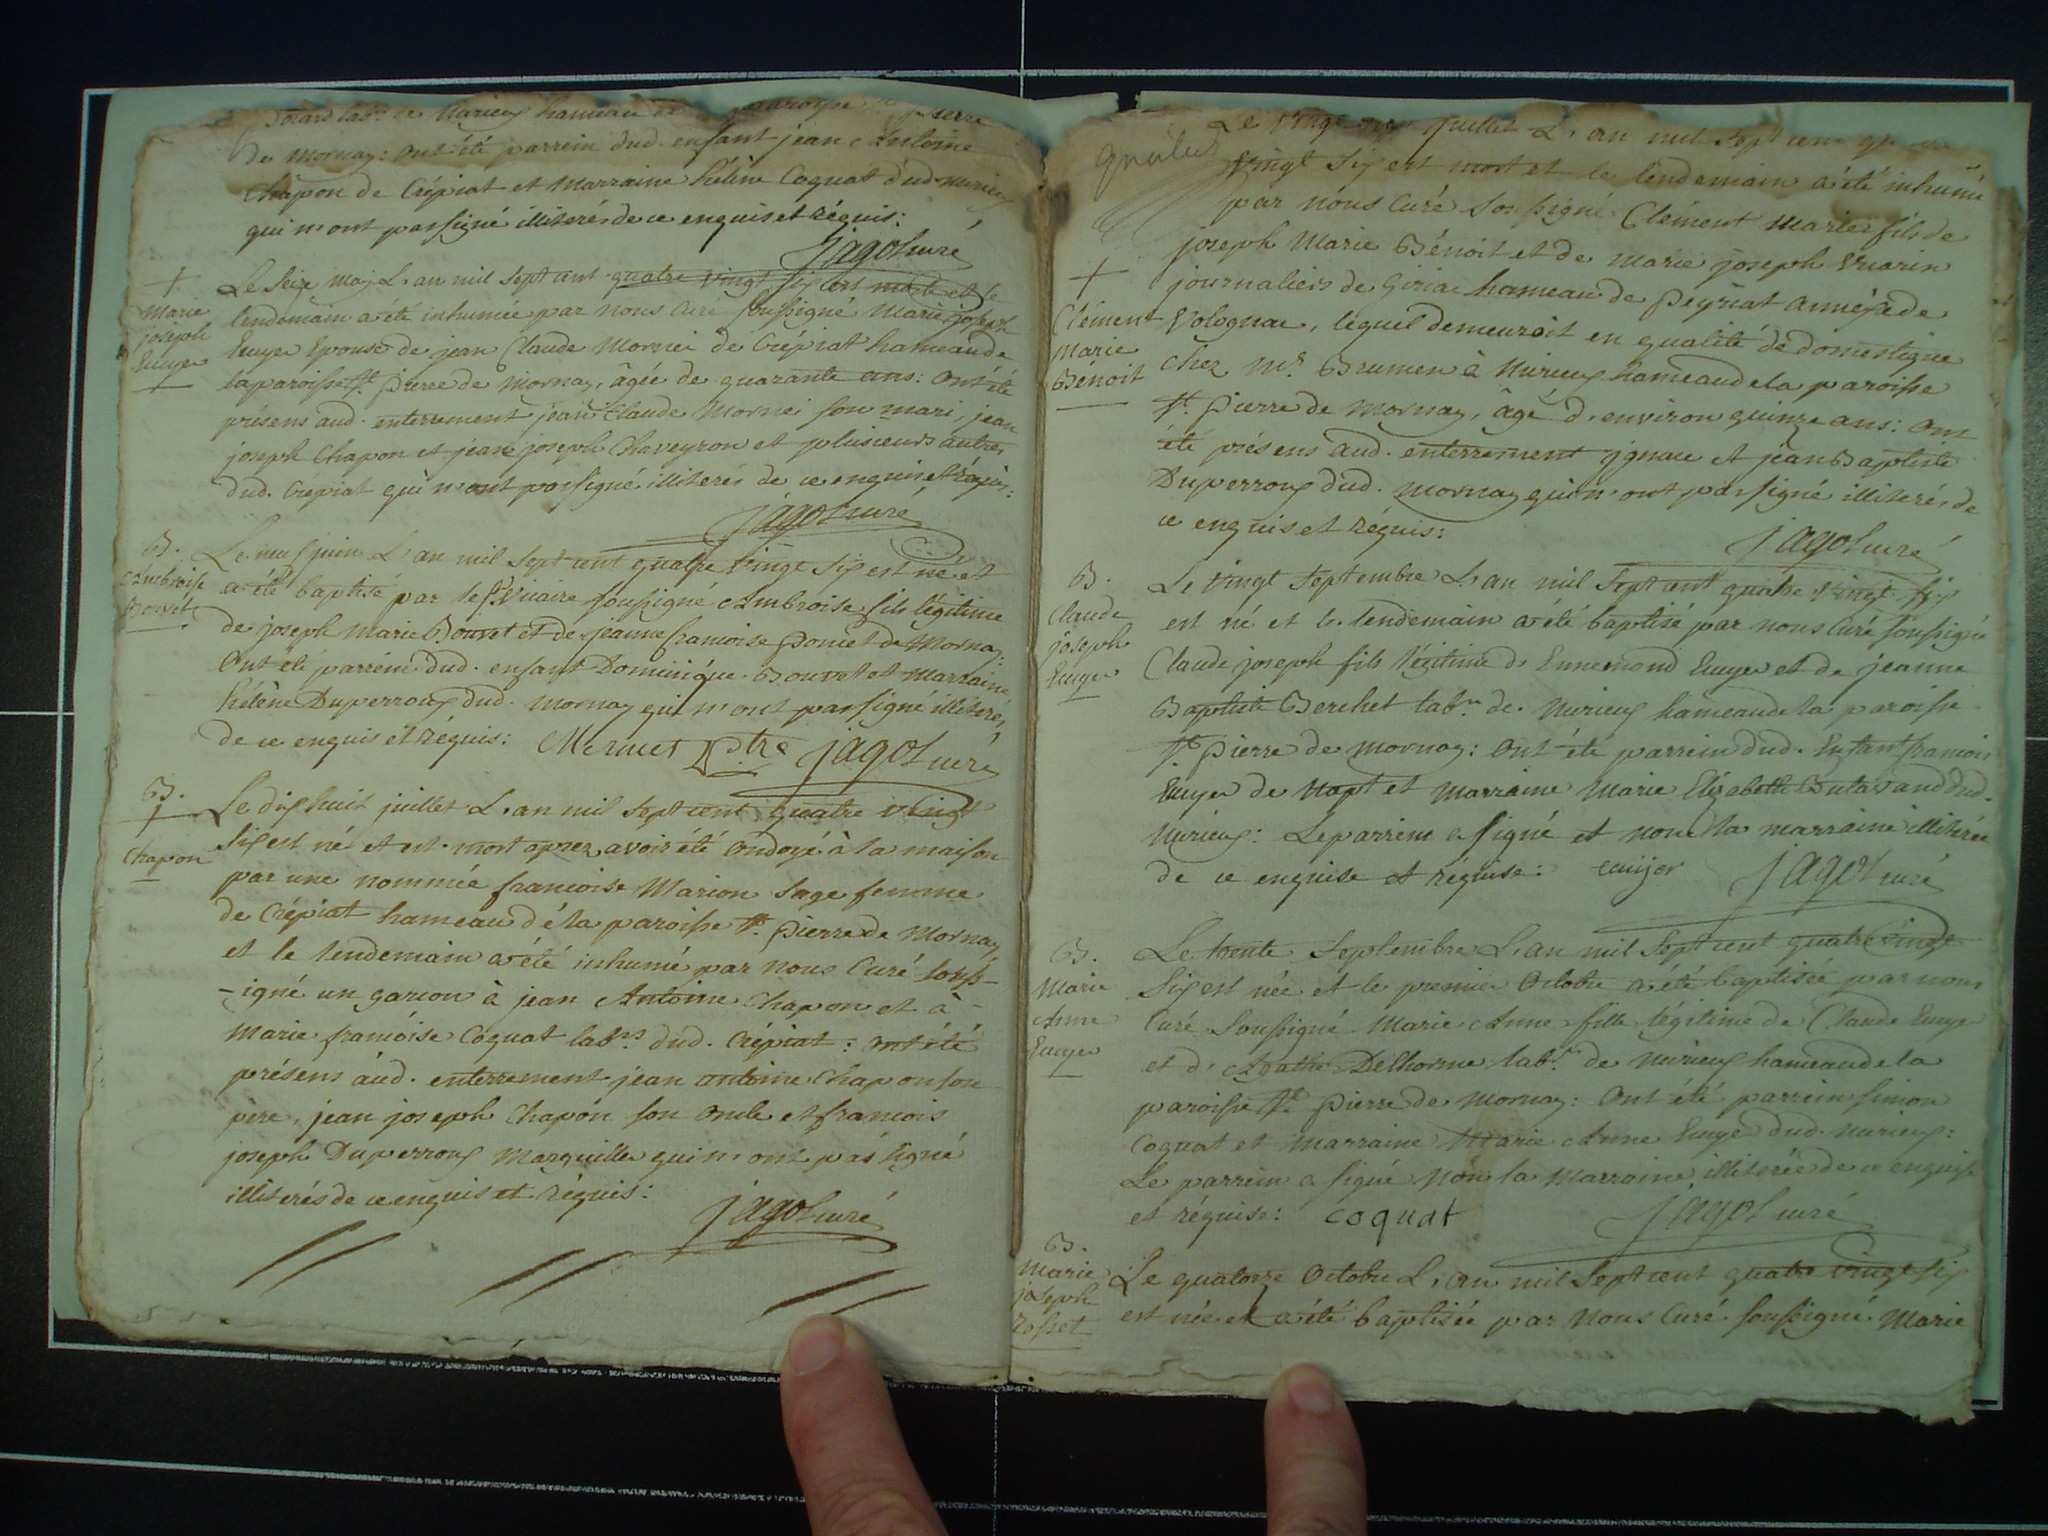 labrs de Nurieux hameau de paroisse St pierre
de Mornay: Ont été parrein dud. enfant jean Antoine
Chapon de Crépiat et Marraine héléne Coquat dud. Nurieux
qui n'ont pas signé illiterés de ce enquis et réquis:
jagot curé
+
Marie
joseph
Euyer
Le Seize May L'an mil Sept cent quatre vingt six est morte et le
lendemain a été inhumée par nous Curé soussigné Marie joseph
Euyer Epouse de jean Claude Mornei de Crépiat hameau de
la paroisse St. pierre de Mornay, âgée de quarante ans: Ont été
présens aud. enterrement jean Claude Mornei son mari, jean
joseph Chapon et jean joseph Chaveyron et plusieurs autres
dud. Crépiat qui n'ont pas signé illiterés de ce enquis et réquis:
jagot curé
B.
Ambroise
Bouvet
Le neuf juin L'an mil Sept cent quatre vingt Six est né et
a été baptisé par le Sr. Vicaire soussigné Ambroise fils légitime
de joseph Marie Bouvet et de jeanne francoise Poncet de Mornay:
Ont été parrein dud. enfant Dominique Bouvet et Marraine
hélène Duperroux dud. Mornay qui n'ont pas signé illiterés
de ce enquis et réquis: Mermet Ptre jagot curé
B.
+
Chapon
Le dix huit juillet L'an mil Sept cent quatre vingt
Six est né et est mort aprez avoir été ondoyé à la maison
par une nommée francoise Marion Sage femme
de Crépiat hameau de la paroisse St. pierre de Mornay
et le lendemain a été inhumé par nous Curé Souss-
-igné un garcon à jean Antoine Chapon et à
Marie francoise Coquat labrs dud. Crépiat: ont été
présens aud. enterrement jean antoine Chapon son
pere, jean joseph Chapon son oncle et francois
joseph Duperroux Marguiller qui n'ont pas signé
illiterés de ce enquis et réquis:
jagot curé
Le Vingt juillet L'an mil Sept cent
Vingt Six est mort et le lendemain a été inhumé
par nous Curé Soussigné Clément Marie fils de
joseph Marie Bénoit et de Marie joseph Vuarin
+
Clément
Marie
Bénoit
journaliers de Giriat hameau de Peyriat annéxe de
Volognat, lequel demeuroit en qualité de domestique
chez Mr. Brumen à Nurieux hameau de la paroisse
St. pierre de Mornay, âgé d'environ quinze ans: Ont
été présens aud. enterrement ignace et jean Baptiste
Duperroux dud. Mornay qui n'ont pas signé illiterés de
ce enquis et réquis:
jagot curé
B.
Claude
joseph
Euyer
Le Vingt Septembre L'an mil Sept cent quatre vingt six
est né et le lendemain a été baptisé par nous Curé soussigné
Claude joseph fils légitime de Ennemond Euyer et de jeanne
Baptiste Berchet labrs de Nurieux hameau de la paroisse
St. pierre de Mornay: Ont été parrein dud. Enfant francois
Euyer de Napt et Marraine Marie Elizabeth Butavand dud.
Nurieux: Le parrein a signé et non la marraine illiterée
de ce enquise et réquise: euijer jagot curé
B.
Marie
Anne
Euyer
Le trente Septembre L'an mil Sept cent quatre vingt
Six est née et le premier Octobre a été baptisée par nous
Curé Soussigné Marie Anne fille légitime de Claude Euyer
et d'Agathe Delhorme labrs de Nurieux hameau de la
paroisse St. pierre de Mornay: Ont été parrein Simon
Coquat et marraine Marie Anne Euyer dud. Nurieux:
Le parrein a signé Non la Marraine illiterée de ce enquise
et réquise: coquat jagot curé
B.
Marie
joseph
Rosset
Le quatorze Octobre L'an mil Sept cent quatre vingt six
est née et a été baptisée par Nous Curé soussigné Marie